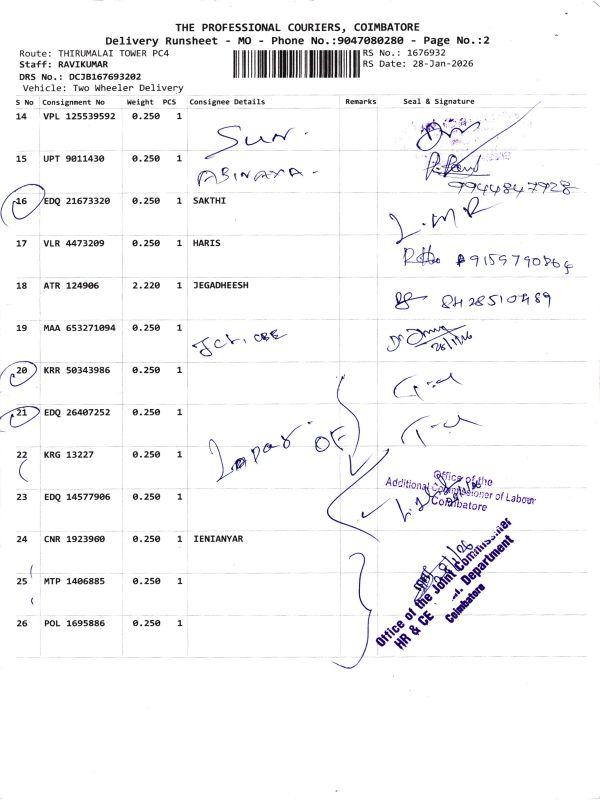 THE PROFESSIONAL COURIERS, COIMBATORE
Delivery Runsheet - MO - Phone No.:9047080280 - Page No.:2
Route: THIRUMALAI TOWER PC4 RS No.: 1676932
Staff: RAVIKUMAR RS Date: 28-Jan-2026
DRS No.: DCJB167693202
Vehicle: Two Wheeler Delivery
S No Consignment No Weight PCS Consignee Details Remarks Seal & Signature
14 VPL 125539592 0.250 1 Sun.
15 UPT 9011430 0.250 1 ABINAYA.
9944847928
16 EDQ 21673320 0.250 1 SAKTHI
17 VLR 4473209 0.250 1 HARIS
9159790864
18 ATR 124906 2.220 1 JEGADHEESH
8428510489
19 MAA 653271094 0.250 1
28/1/26
20 KRR 50343986 0.250 1
21 EDQ 26407252 0.250 1
22 KRG 13227 0.250 1 OF
Office of the
Additional Commissioner of Labour
Coimbatore
23 EDQ 14577906 0.250 1
24 CNR 1923960 0.250 1 IENIANYAR
25 MTP 1406885 0.250 1
26 POL 1695886 0.250 1
Office of the Joint Commissioner
HR & CE Department
Coimbatore